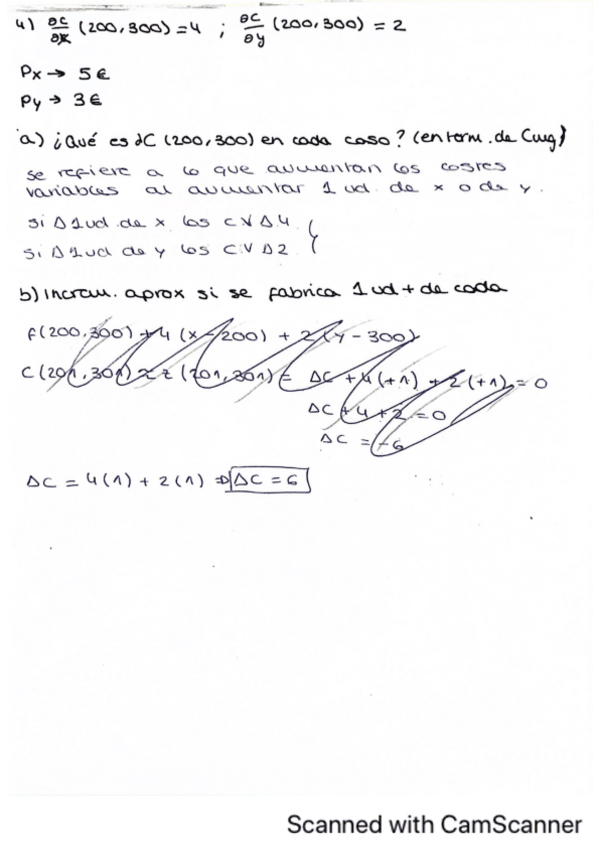 4) ∂C/∂x (200,300) = 4 ; ∂C/∂y (200,300) = 2
Px → 5 €
Py → 3 €
a) ¿Qué es ∂C (200,300) en cada caso? (en term. de Cmg)
se refiere a lo que aumentan los costes
variables al aumentar 1 ud. de x o de y.
si Δ 1ud. de x los CV Δ 4
si Δ 1ud de y los C.V Δ 2
b) Increm. aprox si se fabrica 1 ud + de cada
f(200,300) + 4 (x - 200) + 2 (y - 300)
C (201,301) ≈ z (201,301) = ΔC + 4(+1) + 2(+1) = 0
ΔC + 4 + 2 = 0
ΔC = -6
ΔC = 4(1) + 2(1) ⇒ ΔC = 6
Scanned with CamScanner